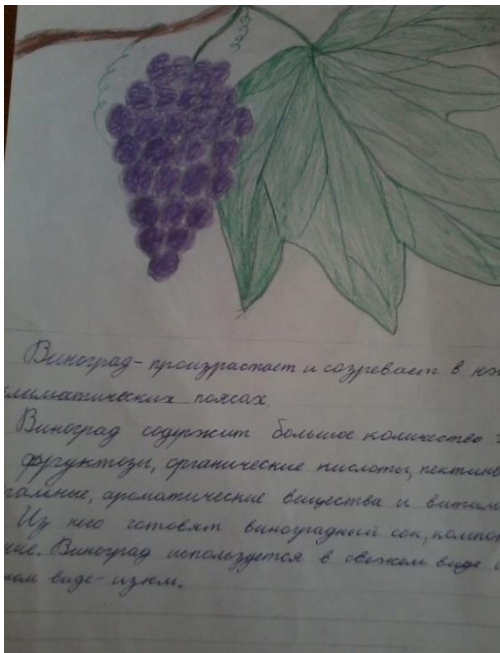 Виноград- произрастает и созревает в юж
климатических поясах.
Виноград содержит большое количество
фруктозы, органические кислоты, пектино
альные, ароматические вещества и витам
Из него готовят виноградный сок, компо
ние. Виноград используется в свежем виде
ном виде- изюм.